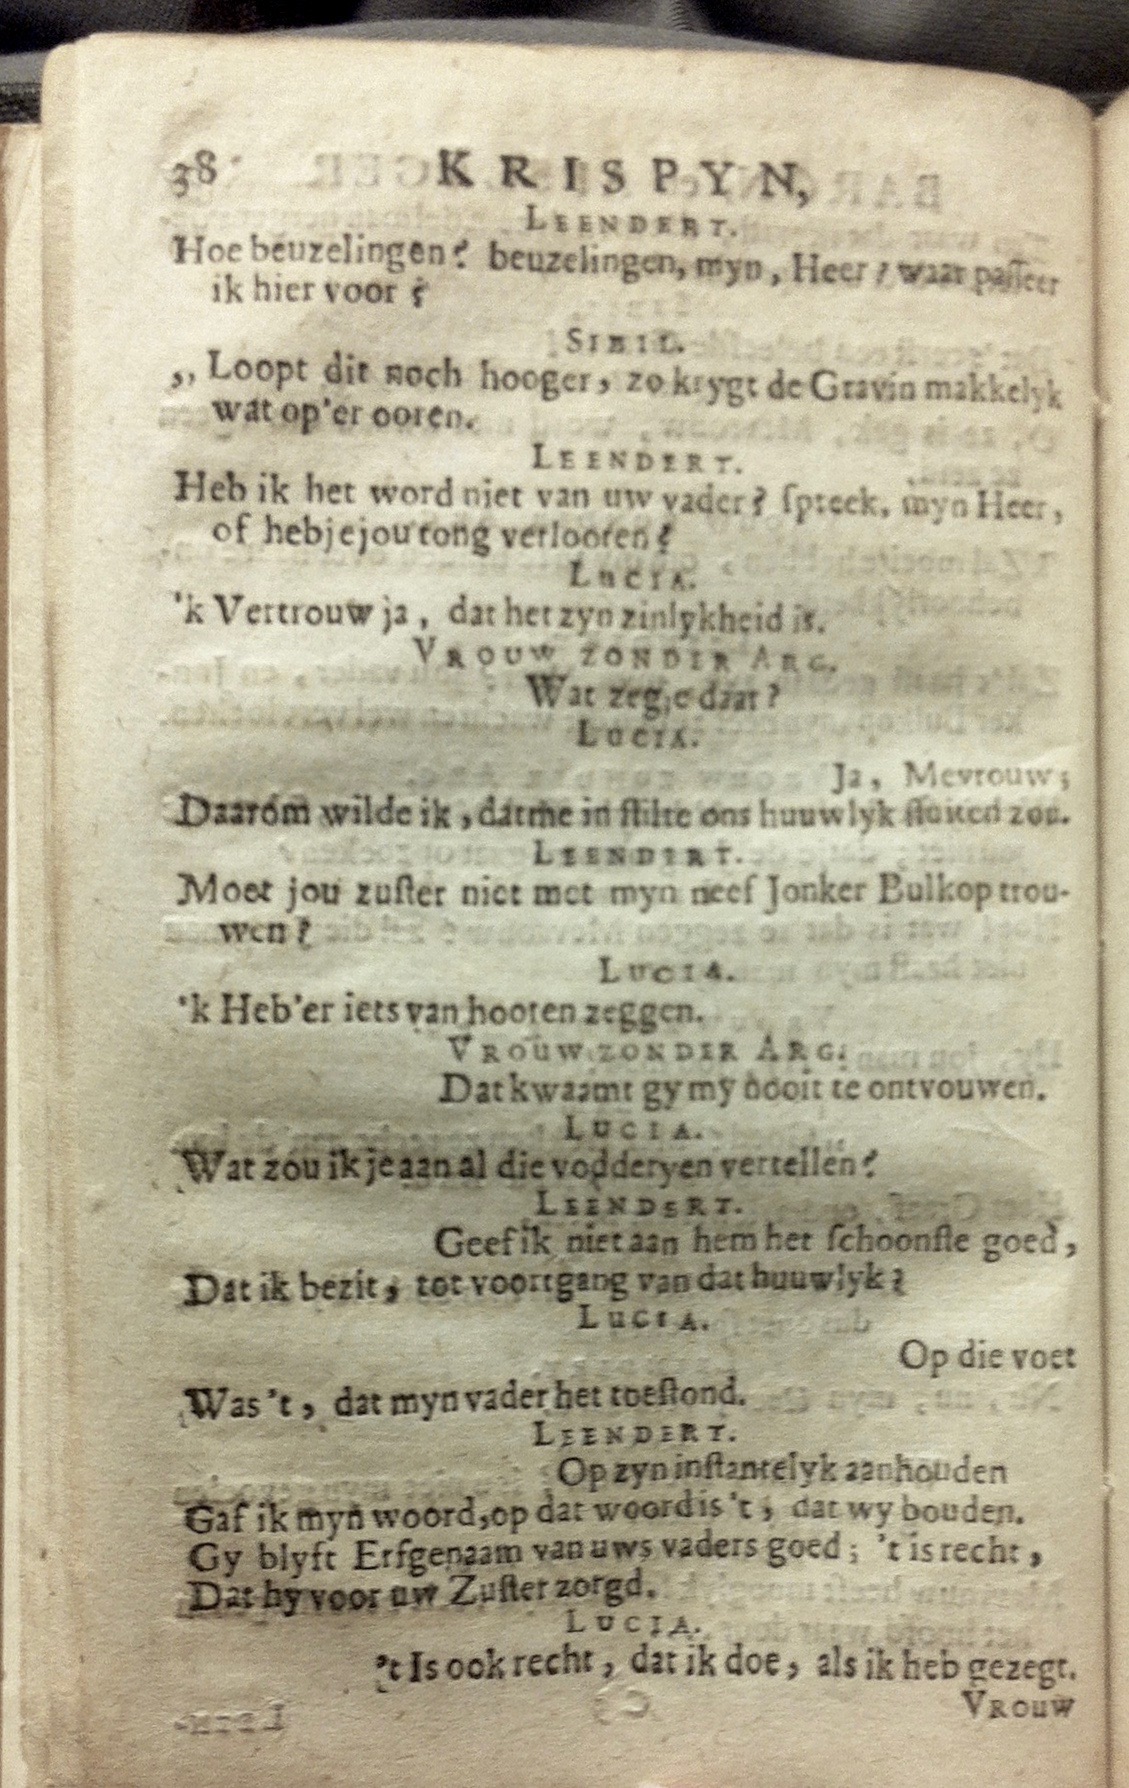 38 KRISPYN,
LEENDERT.
Hoe beuzelingen? beuzelingen, myn, Heer? waar passeer
ik hier voor?
SIBIL.
,, Loopt dit noch hooger, zo krygt de Gravin makkelyk
wat op'er ooren.
LEENDERT.
Heb ik het word niet van uw vader? spreek, myn Heer,
of hebje jou tong verlooren?
LUCIA.
'k Vertrouw ja, dat het zyn zinlykheid is.
VROUW ZONDER ARG.
Wat zegje daar?
LUCIA.
Ja, Mevrouw;
Daarom wilde ik, datme in stilte ons huuwlyk sluiten zou.
LEENDERT.
Moet jou zuster niet met myn neef Jonker Bulkop trou-
wen?
LUCIA.
'k Heb'er iets van hooren zeggen.
VROUW ZONDER ARG.
Dat kwaamt gy my nooit te ontvouwen.
LUCIA.
Wat zou ik je aan al die vodderyen vertellen?
LEENDERT.
Geef ik niet aan hem het schoonste goed,
Dat ik bezit, tot voortgang van dat huuwlyk?
LUCIA.
Op die voet
Was't, dat myn vader het toestond.
LEENDERT.
Op zyn instantelyk aanhouden
Gaf ik myn woord, op dat woord is't, dat wy bouden.
Gy blyft Erfgenaam van uws vaders goed; 't is recht,
Dat hy voor uw Zuster zorgd.
LUCIA.
't Is ook recht, dat ik doe, als ik heb gezegt.
VROUW